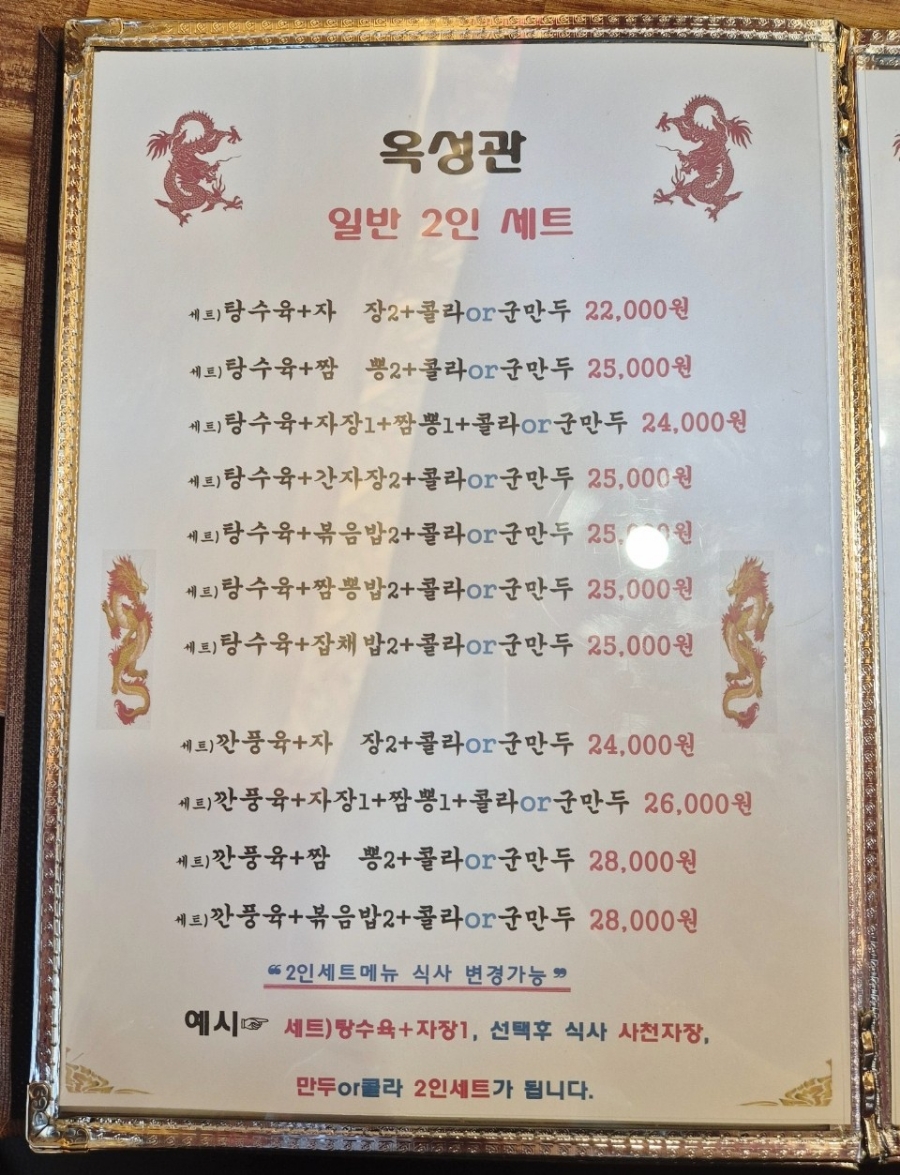 옥성관
일반 2인 세트
세트)탕수육+자 장2+콜라or군만두 22,000원
세트)탕수육+짬 뽕2+콜라or군만두 25,000원
세트)탕수육+자장1+짬뽕1+콜라or군만두 24,000원
세트)탕수육+간자장2+콜라or군만두 25,000원
세트)탕수육+볶음밥2+콜라or군만두
세트)탕수육+짬뽕밥2+콜라or군만두 25,000원
세트)탕수육+잡채밥2+콜라or군만두 25,000원
세트)깐풍육+자 장2+콜라or군만두 24,000원
세트)깐풍육+자장1+짬뽕1+콜라or군만두 26,000원
세트)깐풍육+짬 뽕2+콜라or군만두 28,000원
세트)깐풍육+볶음밥2+콜라or군만두 28,000원
“2인세트메뉴 식사 변경가능”
예시☞ 세트)탕수육+자장1, 선택후 식사 사천자장,
만두or콜라 2인세트가 됩니다.